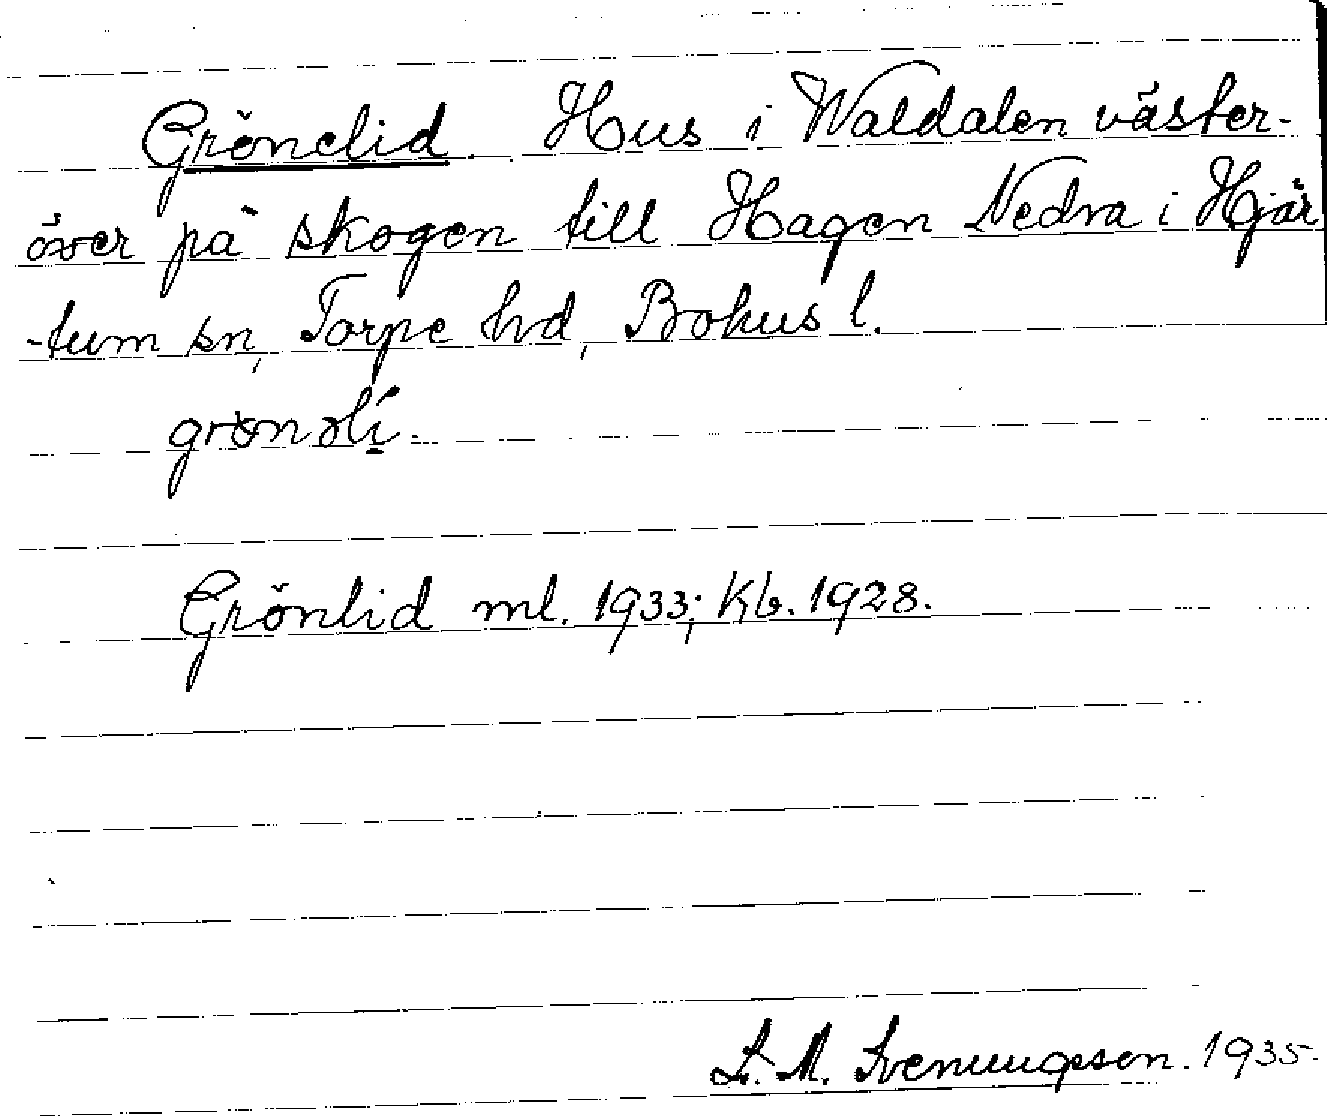 Grönelid Hus i Waldalen väster-
över på skogen till Hagen Nedra i Hjär
-tum sn, Torpe hd, Bohus l.
Grönlid ml. 1933; Kb. 1928.
L. M. Svenungsson. 1935.